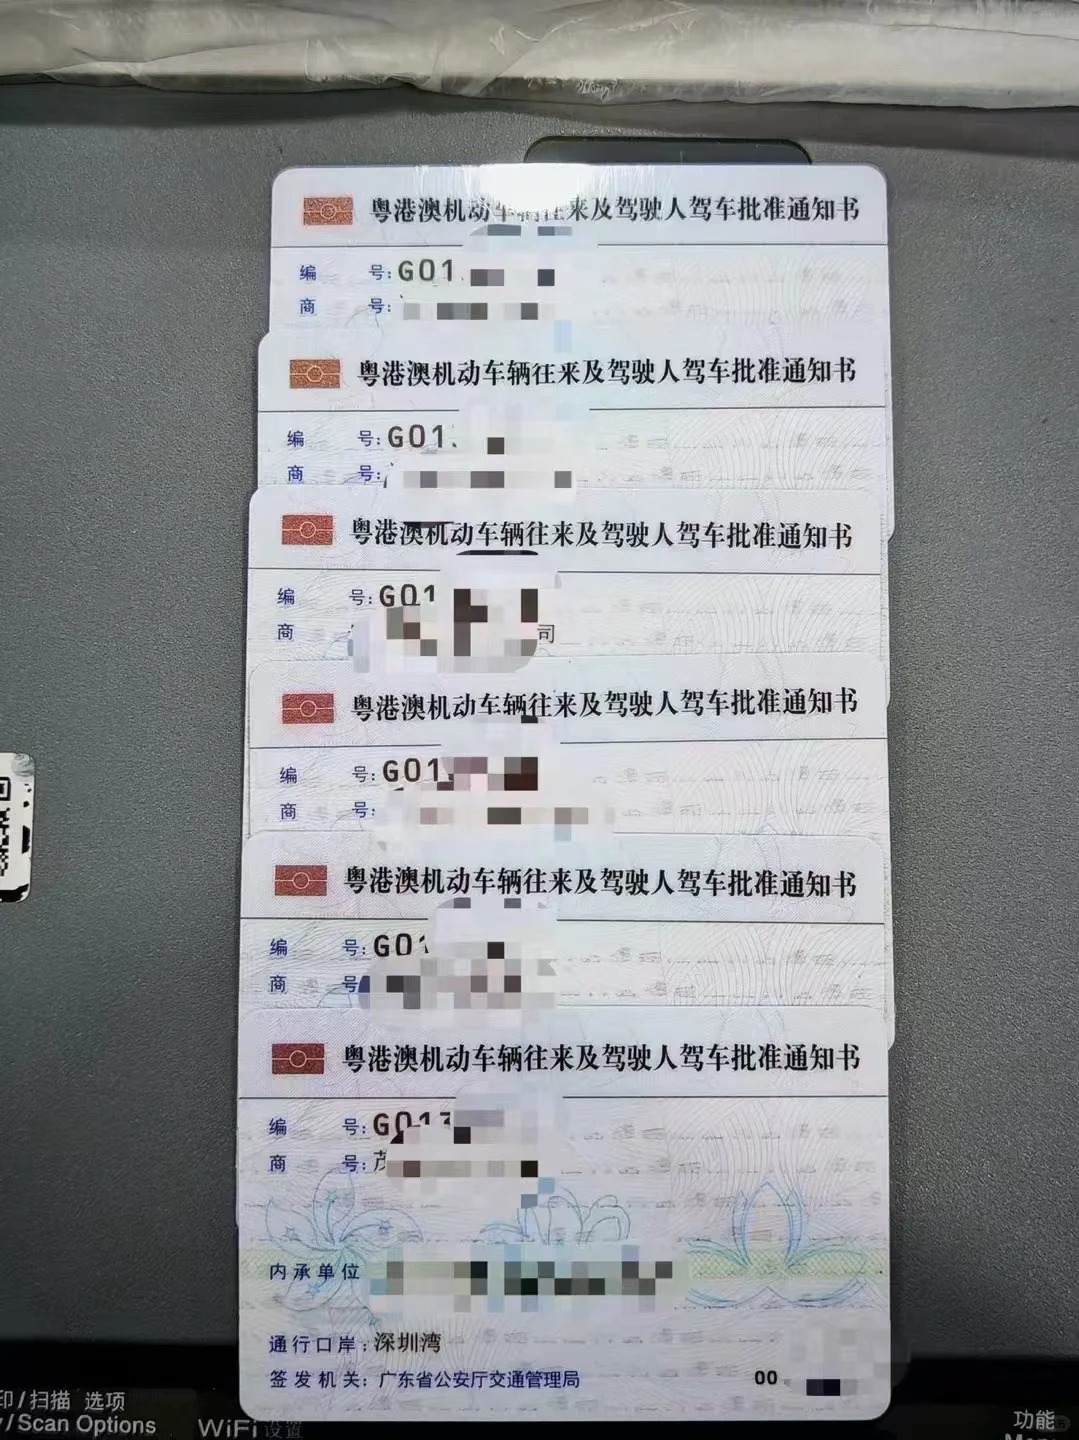 粤港澳机动车辆往来及驾驶人驾车批准通知书
编 号:G01
商 号:
粤港澳机动车辆往来及驾驶人驾车批准通知书
编 号:G01
商 号:
粤港澳机动车辆往来及驾驶人驾车批准通知书
编 号:G01
商 司
粤港澳机动车辆往来及驾驶人驾车批准通知书
编 号:G01
商 号:
粤港澳机动车辆往来及驾驶人驾车批准通知书
编 号:G01
商 号
粤港澳机动车辆往来及驾驶人驾车批准通知书
编 号:G017
商 号:茂
内承单位
通行口岸:深圳湾
签发机关:广东省公安厅交通管理局 00
印/扫描 选项
/Scan Options
WiFi 设置
功能